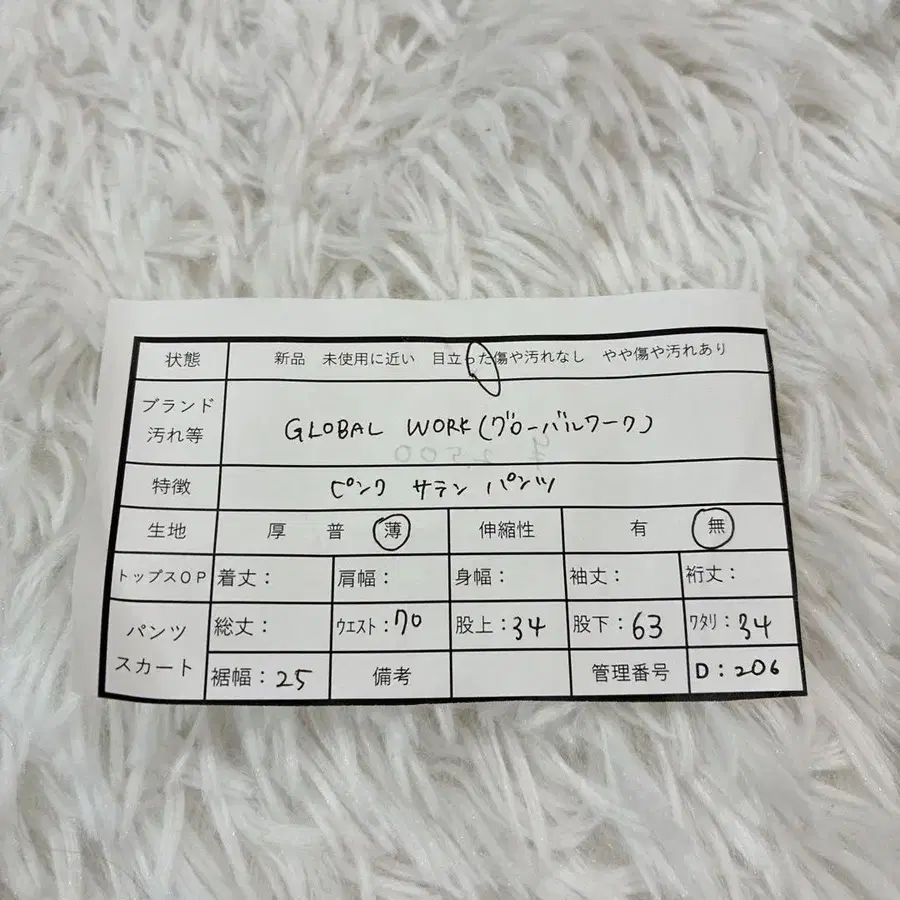 状態 新品 未使用に近い 目立った傷や汚れなし やや傷や汚れあり
ブランド
汚れ等
GLOBAL WORK(グローバルワーク)
特徴 ピンク サテン パンツ
生地 厚 普 薄 伸縮性 有 無
トップスOP 着丈: 肩幅: 身幅: 袖丈: 裄丈:
パンツ
スカート
総丈: ウエスト:70 股上:34 股下:63 ワタリ:34
裾幅:25 備考 管理番号 D:206